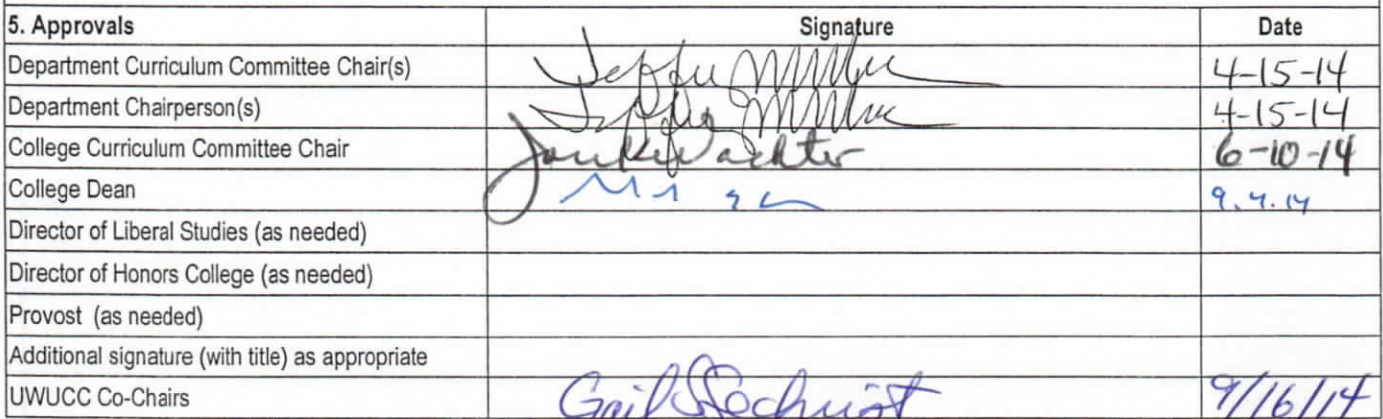 5. Approvals Signature Date
Department Curriculum Committee Chair(s) 4-15-14
Department Chairperson(s) 4-15-14
College Curriculum Committee Chair 6-10-14
College Dean 9.4.14
Director of Liberal Studies (as needed)
Director of Honors College (as needed)
Provost (as needed)
Additional signature (with title) as appropriate
UWUCC Co-Chairs Gail Sechrist 9/16/14